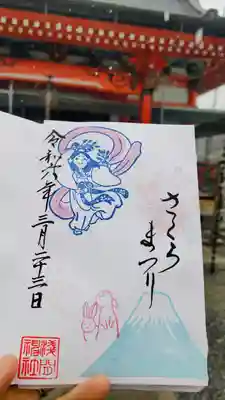 さくら
まつり
令和六年 三月二十三日
浅間
神社